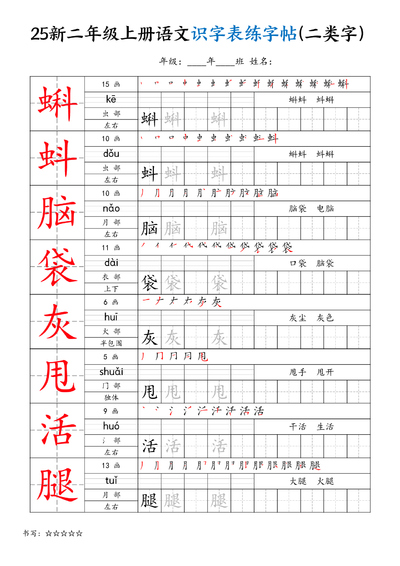 25新二年级上册语文识字表练字帖(二类字)
年级：____年____班 姓名：
蝌 15 画
kē 蝌蚪 蝌蚪
虫 部 左右 蝌 蝌 蝌
蚪 10 画
dǒu 蝌蚪 蚪蝌
虫 部 左右 蚪 蚪 蚪
脑 10 画
nǎo 脑袋 电脑
月 部 左右 脑 脑 脑
袋 11 画
dài 口袋 脑袋
衣 部 上下 袋 袋 袋
灰 6 画
huī 灰尘 灰色
火 部 半包围 灰 灰 灰
甩 5 画
shuǎi 甩手 甩开
冂 部 独体 甩 甩 甩
活 9 画
huó 干活 生活
氵 部 左右 活 活 活
腿 13 画
tuǐ 大腿 火腿
月 部 左右 腿 腿 腿
书写：☆☆☆☆☆